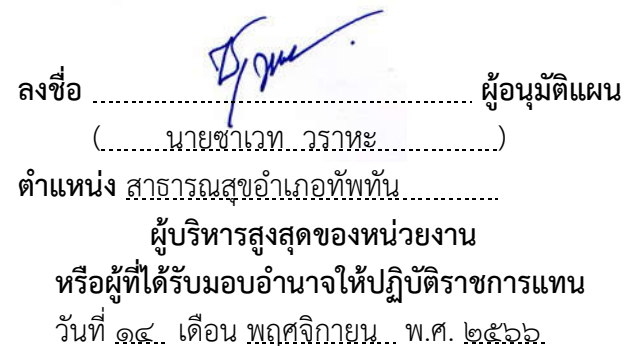 ลงชื่อ ........................................................ ผู้อนุมัติแผน
(.........นายชาเวท วราหะ..................)
ตำแหน่ง สาธารณสุขอำเภอทัพทัน..............
ผู้บริหารสูงสุดของหน่วยงาน
หรือผู้ที่ได้รับมอบอำนาจให้ปฏิบัติราชการแทน
วันที่ ๑๔ เดือน พฤศจิกายน พ.ศ. ๒๕๖๖